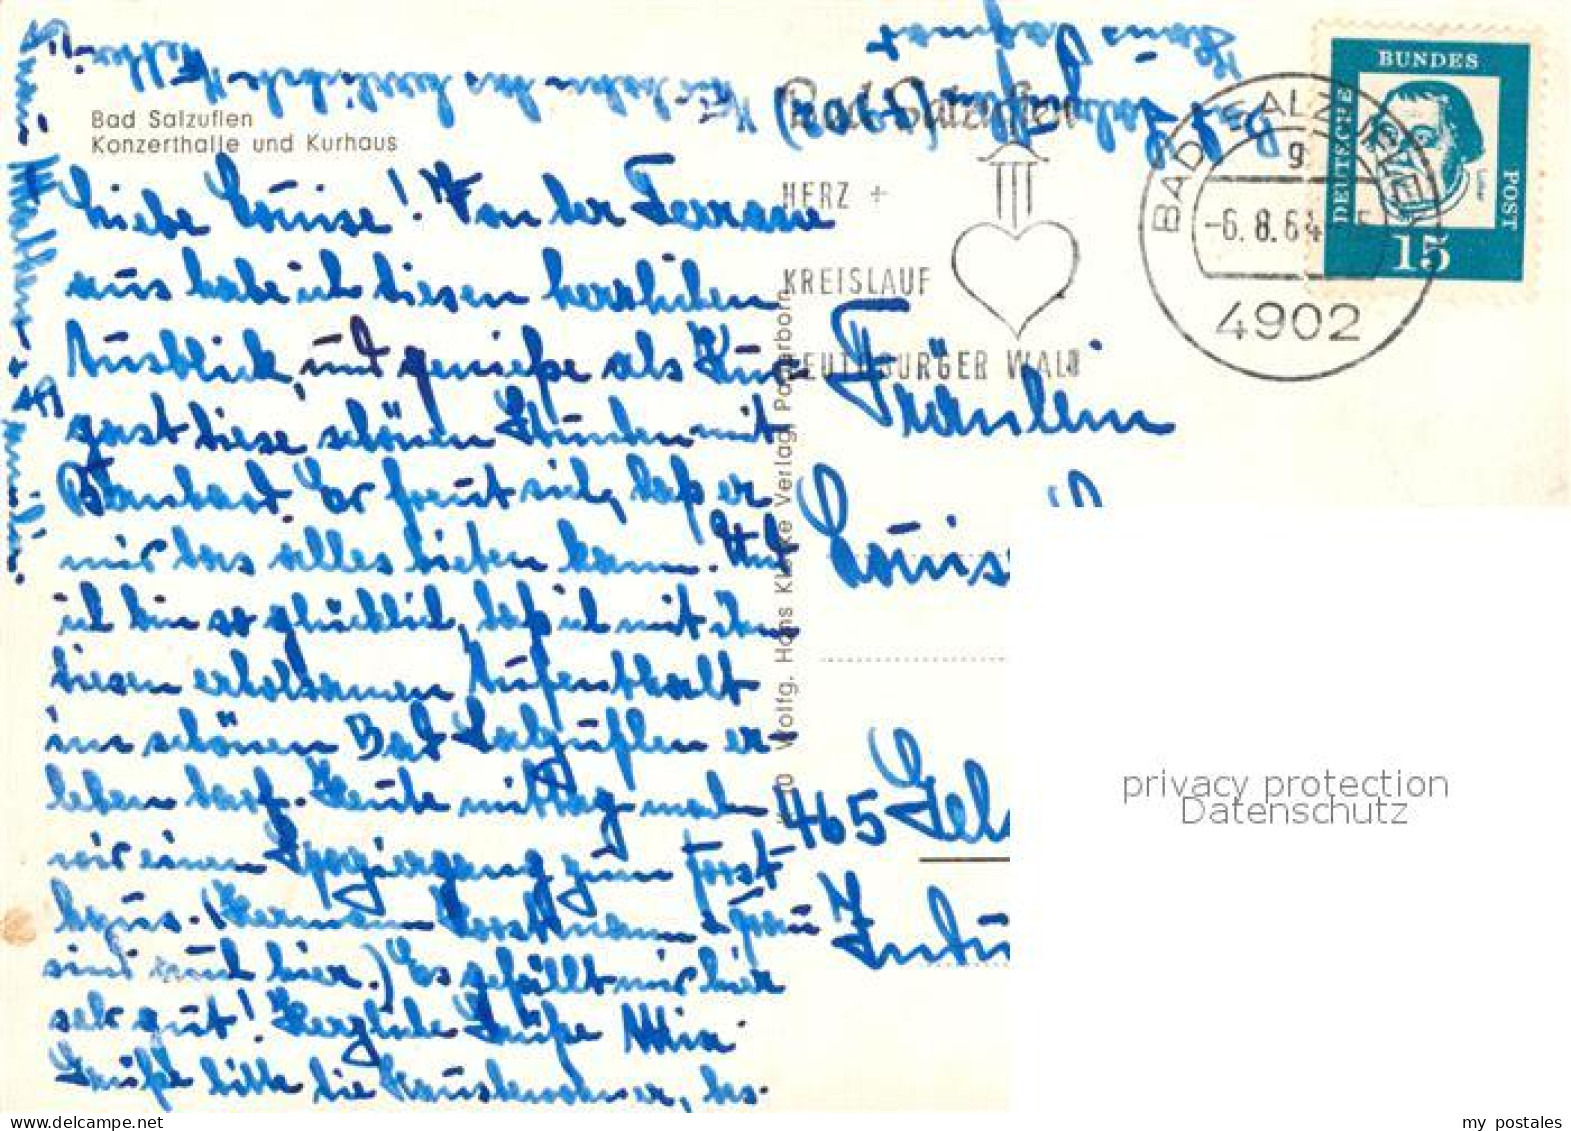 Bad Salzuflen
Konzerthalle und Kurhaus
Liebe Louise! Von der Terrasse
aus habe ich diesen herrlichen
Ausblick, und genieße als Kur-
gast diese schönen Stunden mit
Er freut sich, daß er
mir das alles bieten kann. Und
ich bin so glücklich, daß ich mit ihm
diesen erholsamen Aufenthalt
im schönen Bad Salzuflen er-
leben darf. Heute mittag machen
wir einen Spaziergang zum Forst
haus. (Hermann Horstmann + Frau
sind auch hier.) Es gefällt mir hier
sehr gut! Herzliche Grüße Mia
Grüße bitte die Hausbewohner, bes.
Wir haben das herrlichste Wetter!
Haus Dagmar
Bad Salzuflen (4902)
Bad Salzuflen
HERZ +
KREISLAUF
TEUTOBURGER WALD
BAD SALZUFLEN
g
-6.8.64
4902
BUNDES
DEUTSCHE
POST
Luther
15
Wolfg. Hans Klocke Verlag, Paderborn
Fräulein
Louis
465 Gels
Indu
privacy protection
Datenschutz
delcampe.net
my_postales